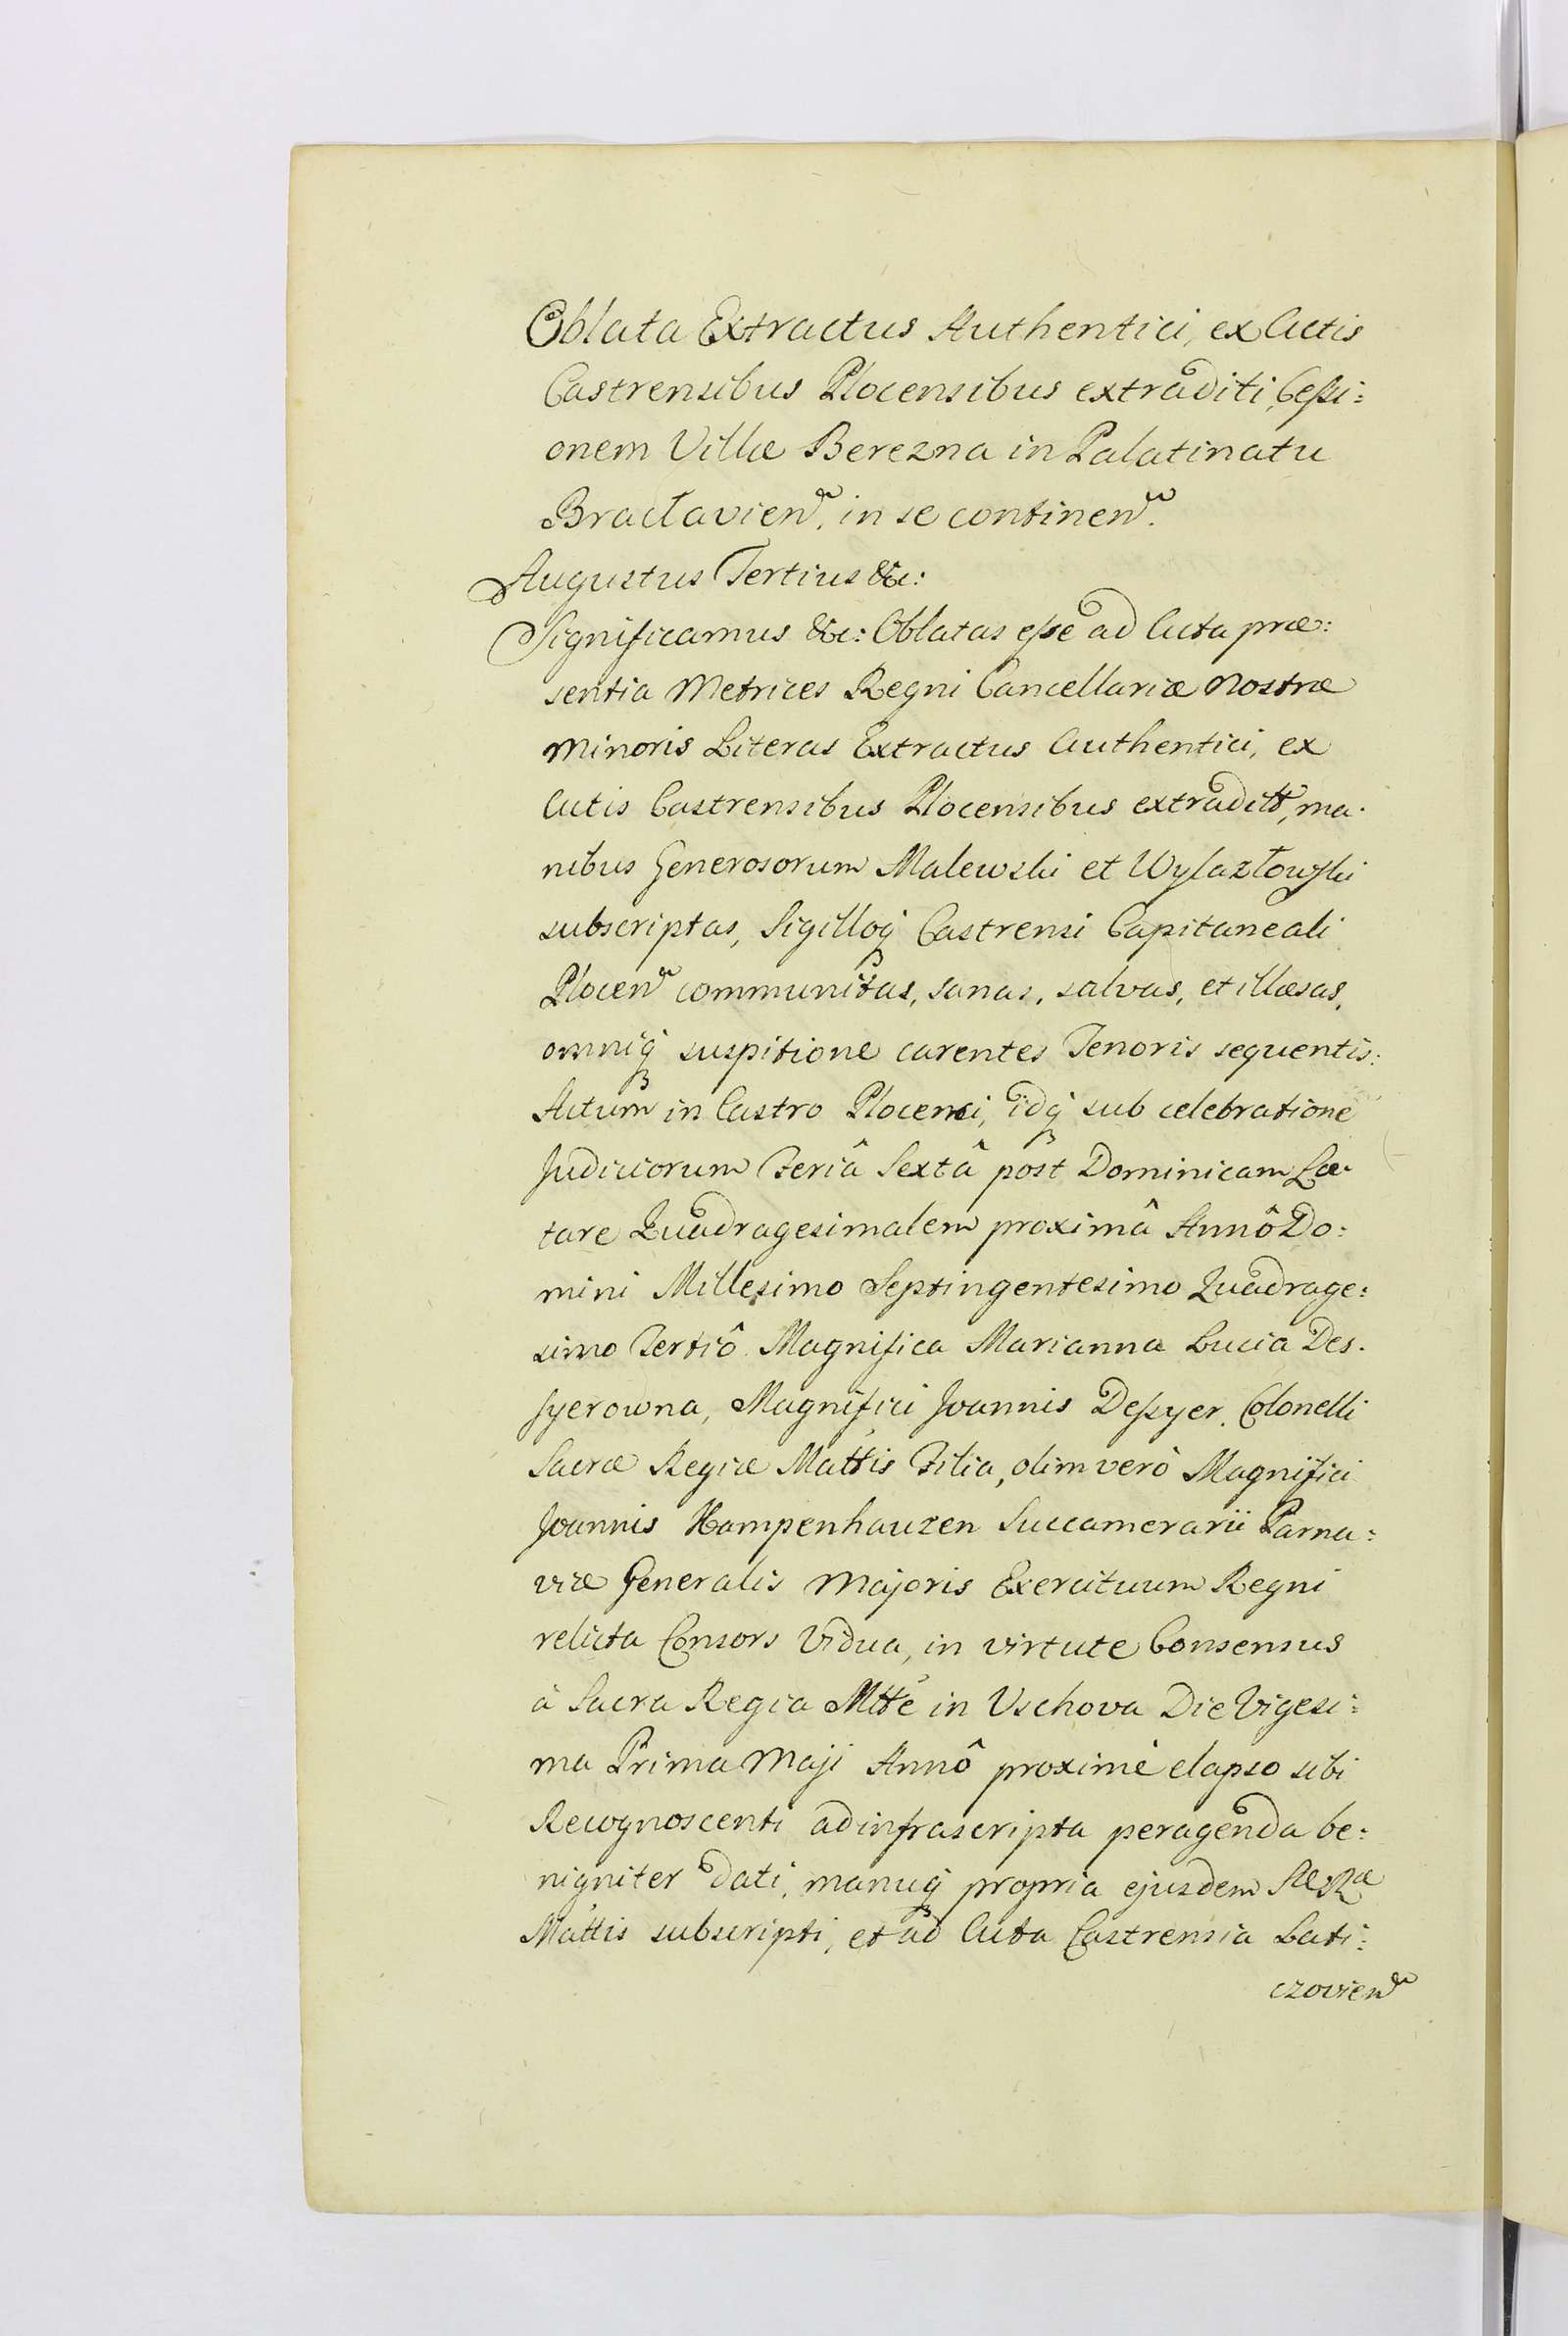 Oblata Extractus Authentici, ex Actis
Castrensibus Plocensibus extraditi, Cessi:
onem Villæ Berezna in Palatinatu
Bractavien. in se continen.
Augustus Tertius &c:
Significamus &c: Oblatas esse ad Acta præ:
sentia Metrices Regni Cancellariæ Nostræ
Minoris Literas Extractus Authentici, ex
Actis Castrensibus Plocensibus extraditt, ma:
nibus Generosorum Malewski et Wylazłowski
subscriptas, Sigilloq̃ Castrensi Capitaneali
Plocen communitas, sanas, salvas, et illæsas,
omniq̃ suspitione carentes Tenoris sequentis:
Actum in Castro Plocensi, idq̃ sub celebratione
Judiciorum Feriâ Sextâ post Dominicam Læ:
tare Quadragesimalem proximâ Annô Do:
mini Millesimo Septingentesimo Quadrage:
simo Tertiô Magnifica Marianna Lucia Des:
syerowna, Magnifici Joannis Dessyer, Colonelli
Sacræ Regiæ Mattis Filia, olim verò Magnifici
Joannis Kampenhauzen Succamerarii Parna:
viæ Generalis Majoris Exercituum Regni
relicta Consors Vidua, in virtute Consensus
à Sacra Regia Mtte in Vschova Die Vigesi:
ma Prima Maji Annô proximè elapso sibi
Recognoscenti ad infrascripta peragenda be:
nigniter dati, manuq̃ propria ejusdem Sæ Ræ
Mattis subscripti, et ad Acta Castrensia Lati:
czovien